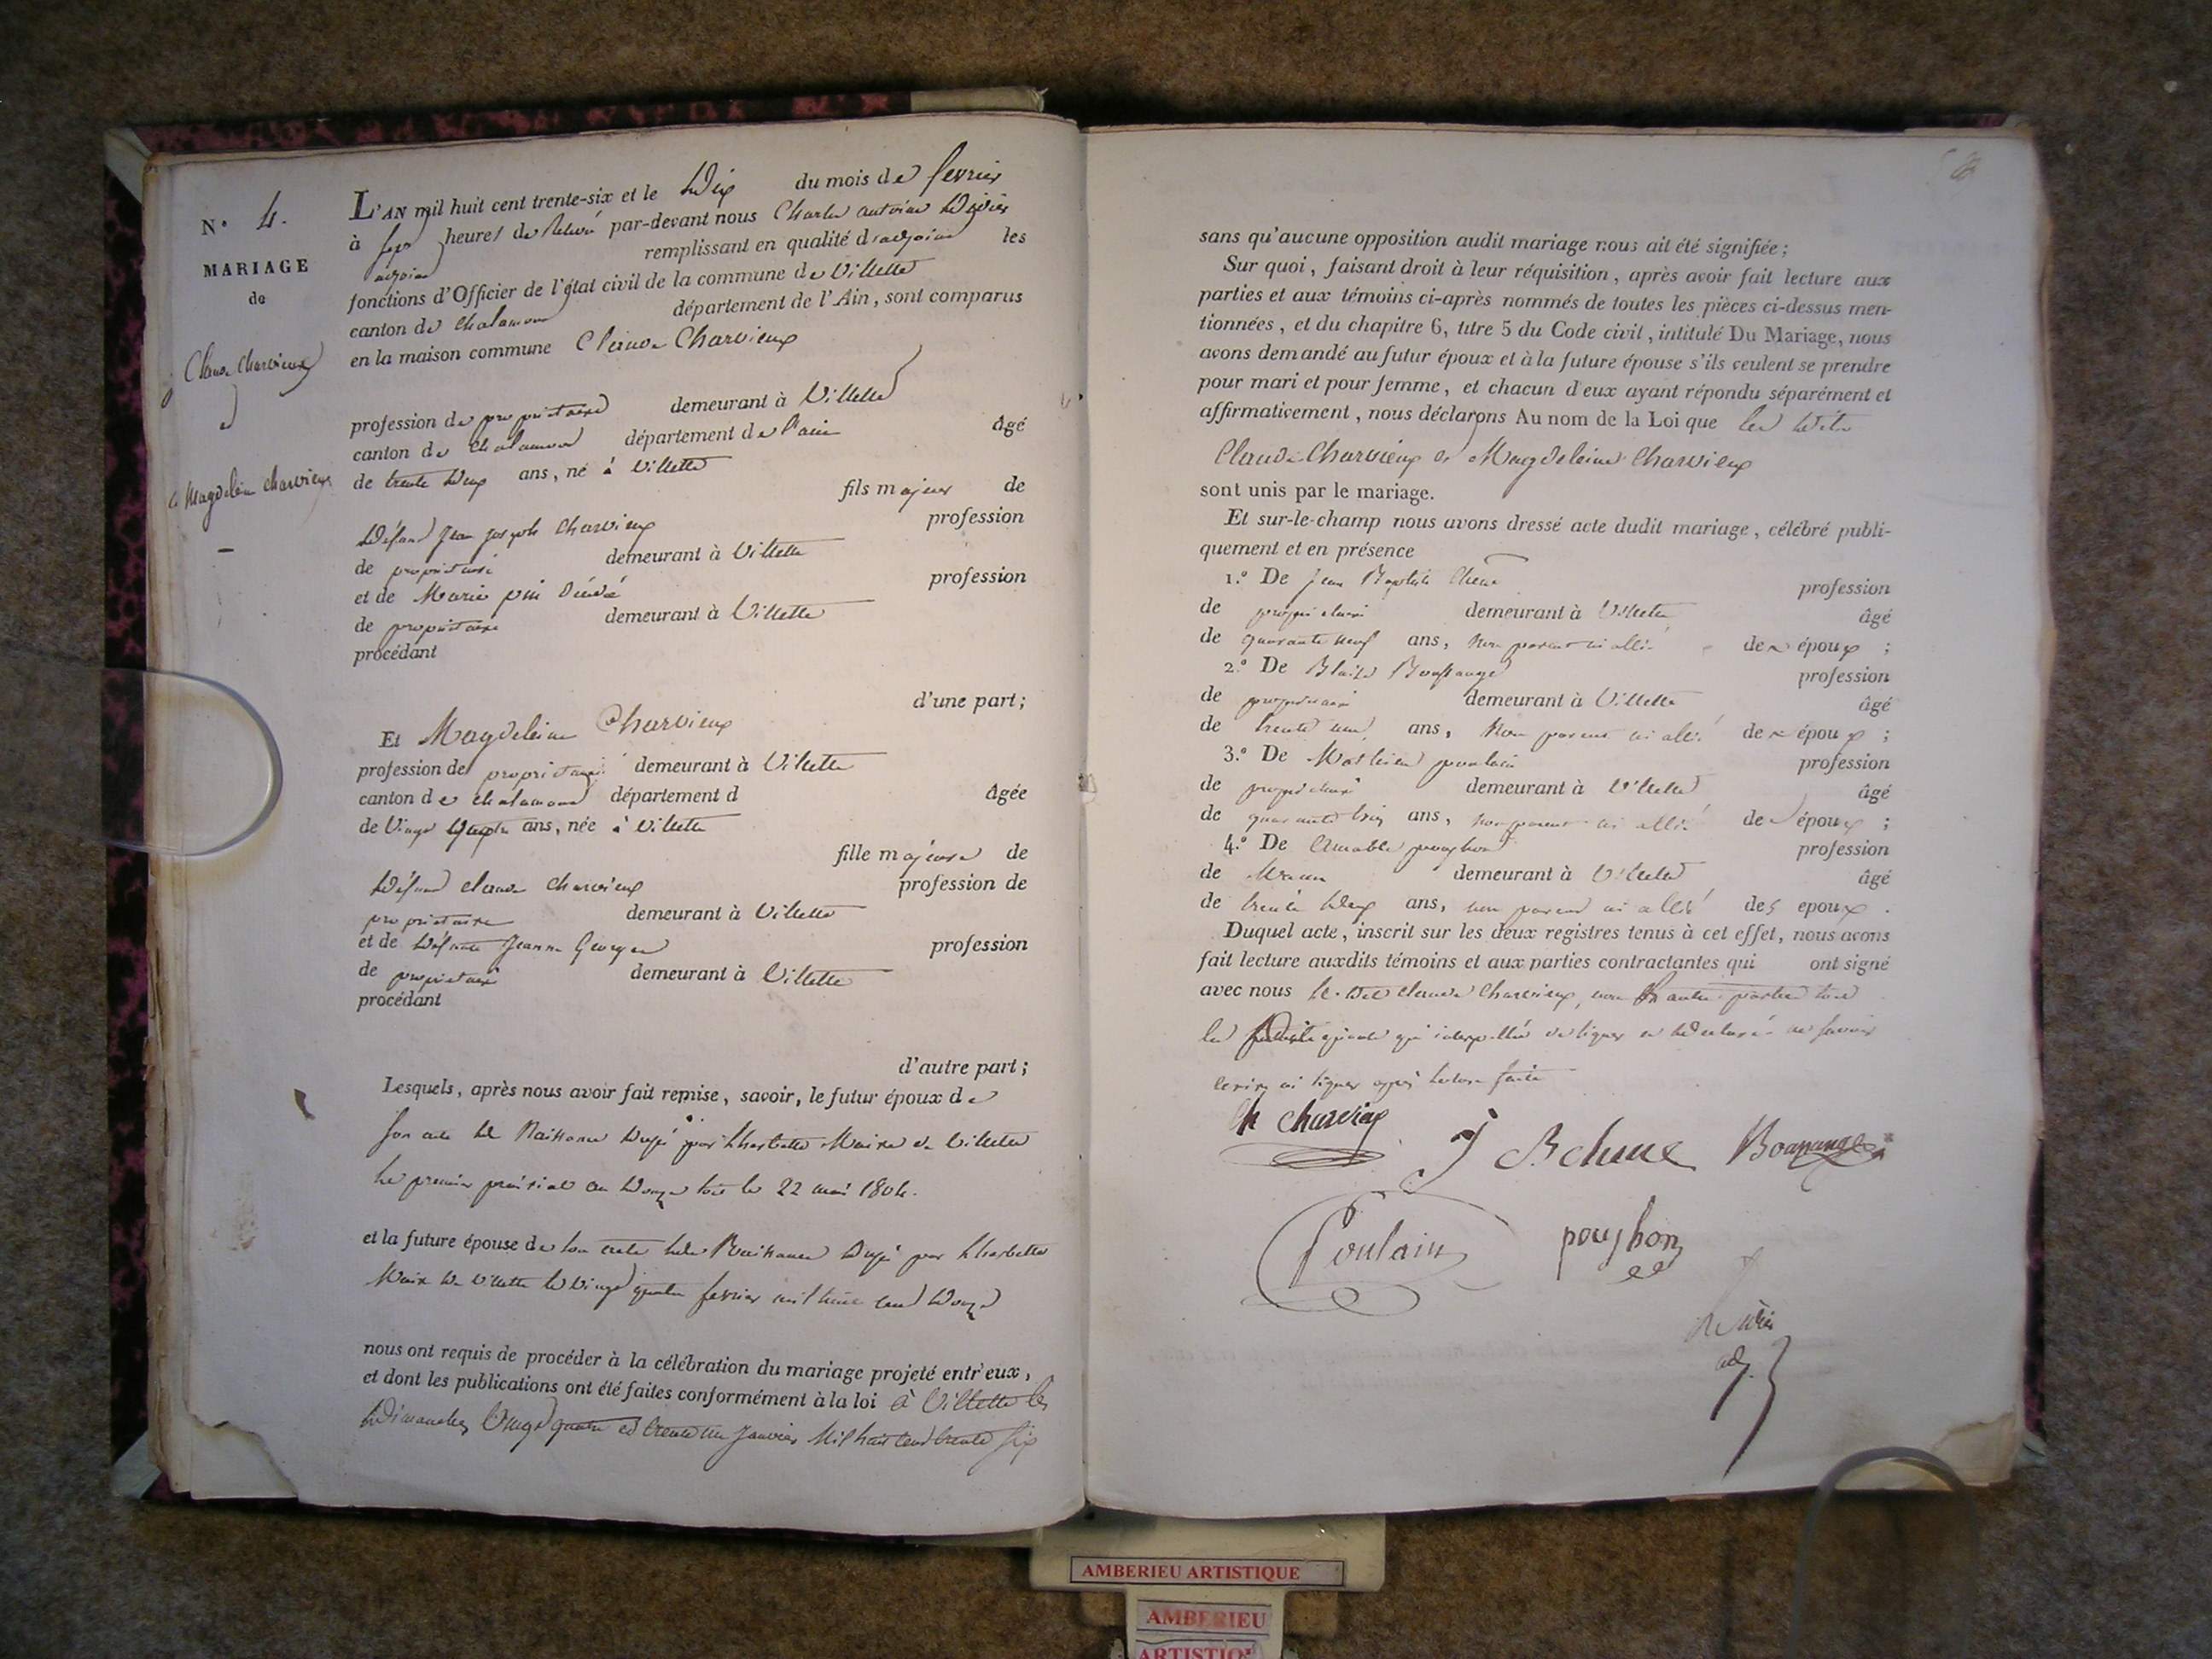 N° 4.
MARIAGE
de
Claude Charvieux
et
Magdeleine Charvieux
L'AN mil huit cent trente-six et le Dix du mois de fevrier
à sept heures du par-devant nous Charles antoine
adjoint remplissant en qualité d'adjoint les
fonctions d'Officier de l'état civil de la commune de Villette
canton de Chalamont département de l'Ain, sont comparus
en la maison commune Claude Charvieux
profession de propriétaire demeurant à Villette
canton de Chalamont département de l'ain âgé
de trente deux ans, né à Villette
fils majeur de
Défunt Jean Joseph Charvieux profession
de propriétaire demeurant à Villette
et de Marie profession
de propriétaire demeurant à Villette
procédant
d'une part;
Et Magdeleine Charvieux
profession de propriétaire demeurant à Villette
canton de Chalamont département d âgée
de Vingt quatre ans, née à Villette
fille majeure de
Défunt Claude Charvieux profession de
propriétaire demeurant à Villette
et de Défunte Jeanne Georges profession
de propriétaire demeurant à Villette
procédant
d'autre part;
Lesquels, après nous avoir fait remise, savoir, le futur époux de
son acte de Naissance par Maire de Villette
le premier prairial an Douze soit le 22 mai 1804.
et la future épouse de son acte de Naissance par
Maire de Villette le Vingt quatre fevrier mil huit cent Douze
nous ont requis de procéder à la célébration du mariage projeté entr'eux,
et dont les publications ont été faites conformément à la loi à Villette les
Dimanches Vingt quatre et trente un Janvier Mil huit cent trente six
sans qu'aucune opposition audit mariage nous ait été signifiée;
Sur quoi, faisant droit à leur réquisition, après avoir fait lecture aux
parties et aux témoins ci-après nommés de toutes les pièces ci-dessus men-
tionnées, et du chapitre 6, titre 5 du Code civil, intitulé Du Mariage, nous
avons demandé au futur époux et à la future épouse s'ils veulent se prendre
pour mari et pour femme, et chacun d'eux ayant répondu séparément et
affirmativement, nous déclarons Au nom de la Loi que les dits
Claude Charvieux et Magdeleine Charvieux
sont unis par le mariage.
Et sur-le-champ nous avons dressé acte dudit mariage, célébré publi-
quement et en présence
1.° De Jean Baptiste Chene profession
de propriétaire demeurant à Villette âgé
de quarante neuf ans, non parent ni allié des époux ;
2.° De Blaise profession
de propriétaire demeurant à Villette âgé
de trente ans, Non parent ni allié des époux ;
3.° De Mathieu poulain profession
de propriétaire demeurant à Villette âgé
de quarante trois ans, non parent ni allié des époux ;
4.° De Aimable poughon profession
de demeurant à Villette âgé
de trente deux ans, non parent ni allié des epoux .
Duquel acte, inscrit sur les deux registres tenus à cet effet, nous avons
fait lecture auxdits témoins et aux parties contractantes qui ont signé
avec nous le dit Claude Charvieux, non
la qui interpellée de signer a déclaré ne savoir
ecrire ni signer après lecture faite
Charvieux
J B chene
Poulain
poughon
adj.
AMBERIEU ARTISTIQUE
AMBERIEU
ARTISTIQ